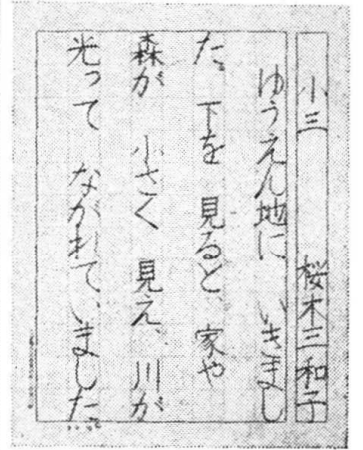 小三 桜木三和子
ゆうえん地に いきまし
た。下を 見ると、家や
森が 小さく 見え、川が
光って ながれていました。